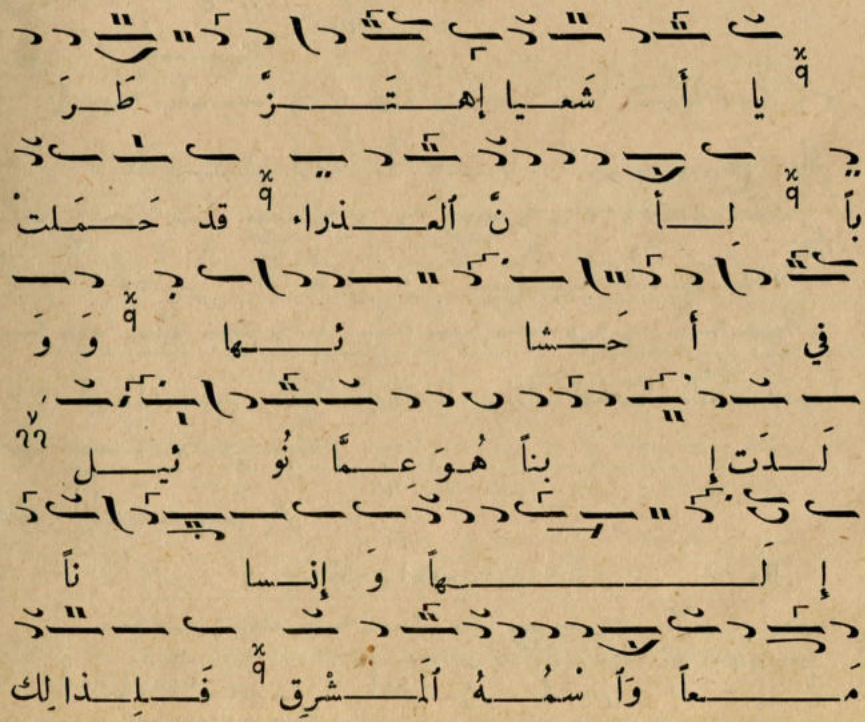 يا أَ شَعـيا إهــتَــــزَّ طَــرَ
باً لِــأَ نَّ ٱلعَــــذراء قد حَــمَـلتْ
في أَ حَــشا ئــــها وَ وَ
لَــدَت إِ بناً هُـوَ عِــمَّا نُو ئيــــل
إِ لَـــــــــــهاً وَ إِنــسا ناً
مَـــــــعاً وَٱ سْمُــــهُ ٱلَمــــشْرِق فَــلِــذا لِك